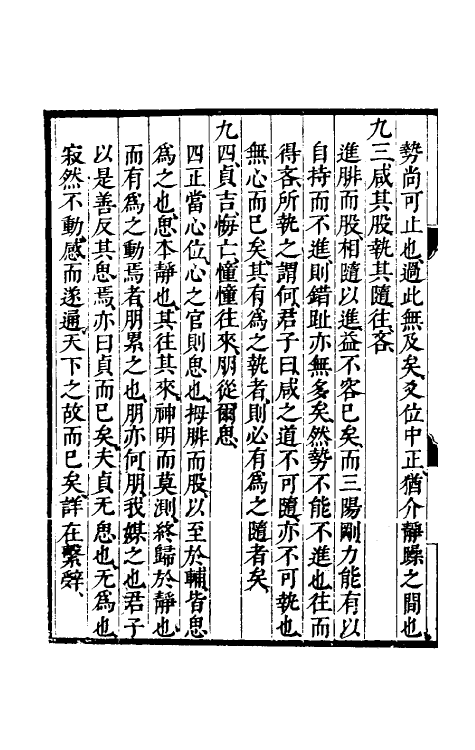 勢尚可止也過此無及矣爻位中正猶介靜躁之間也
九三咸其股執其隨往吝
進腓而股相隨以進益不容已矣而三陽剛力能有以
自持而不進則錯趾亦無多矣然勢不能不進也往而
得吝所執之謂何君子曰咸之道不可隨亦不可執也
無心而已矣其有爲之執者則必有爲之隨者矣
九四貞吉悔亡憧憧往來朋從爾思
四正當心位心之官則思也拇腓而股以至於輔皆思
爲之也思本靜也其往其來神明而莫測終歸於靜也
而有爲之動焉者朋累之也朋亦何朋我媒之也君子
以是善反其思焉亦曰貞而已矣夫貞无思也无爲也
寂然不動感而遂遍天下之故而已矣詳在繫辭